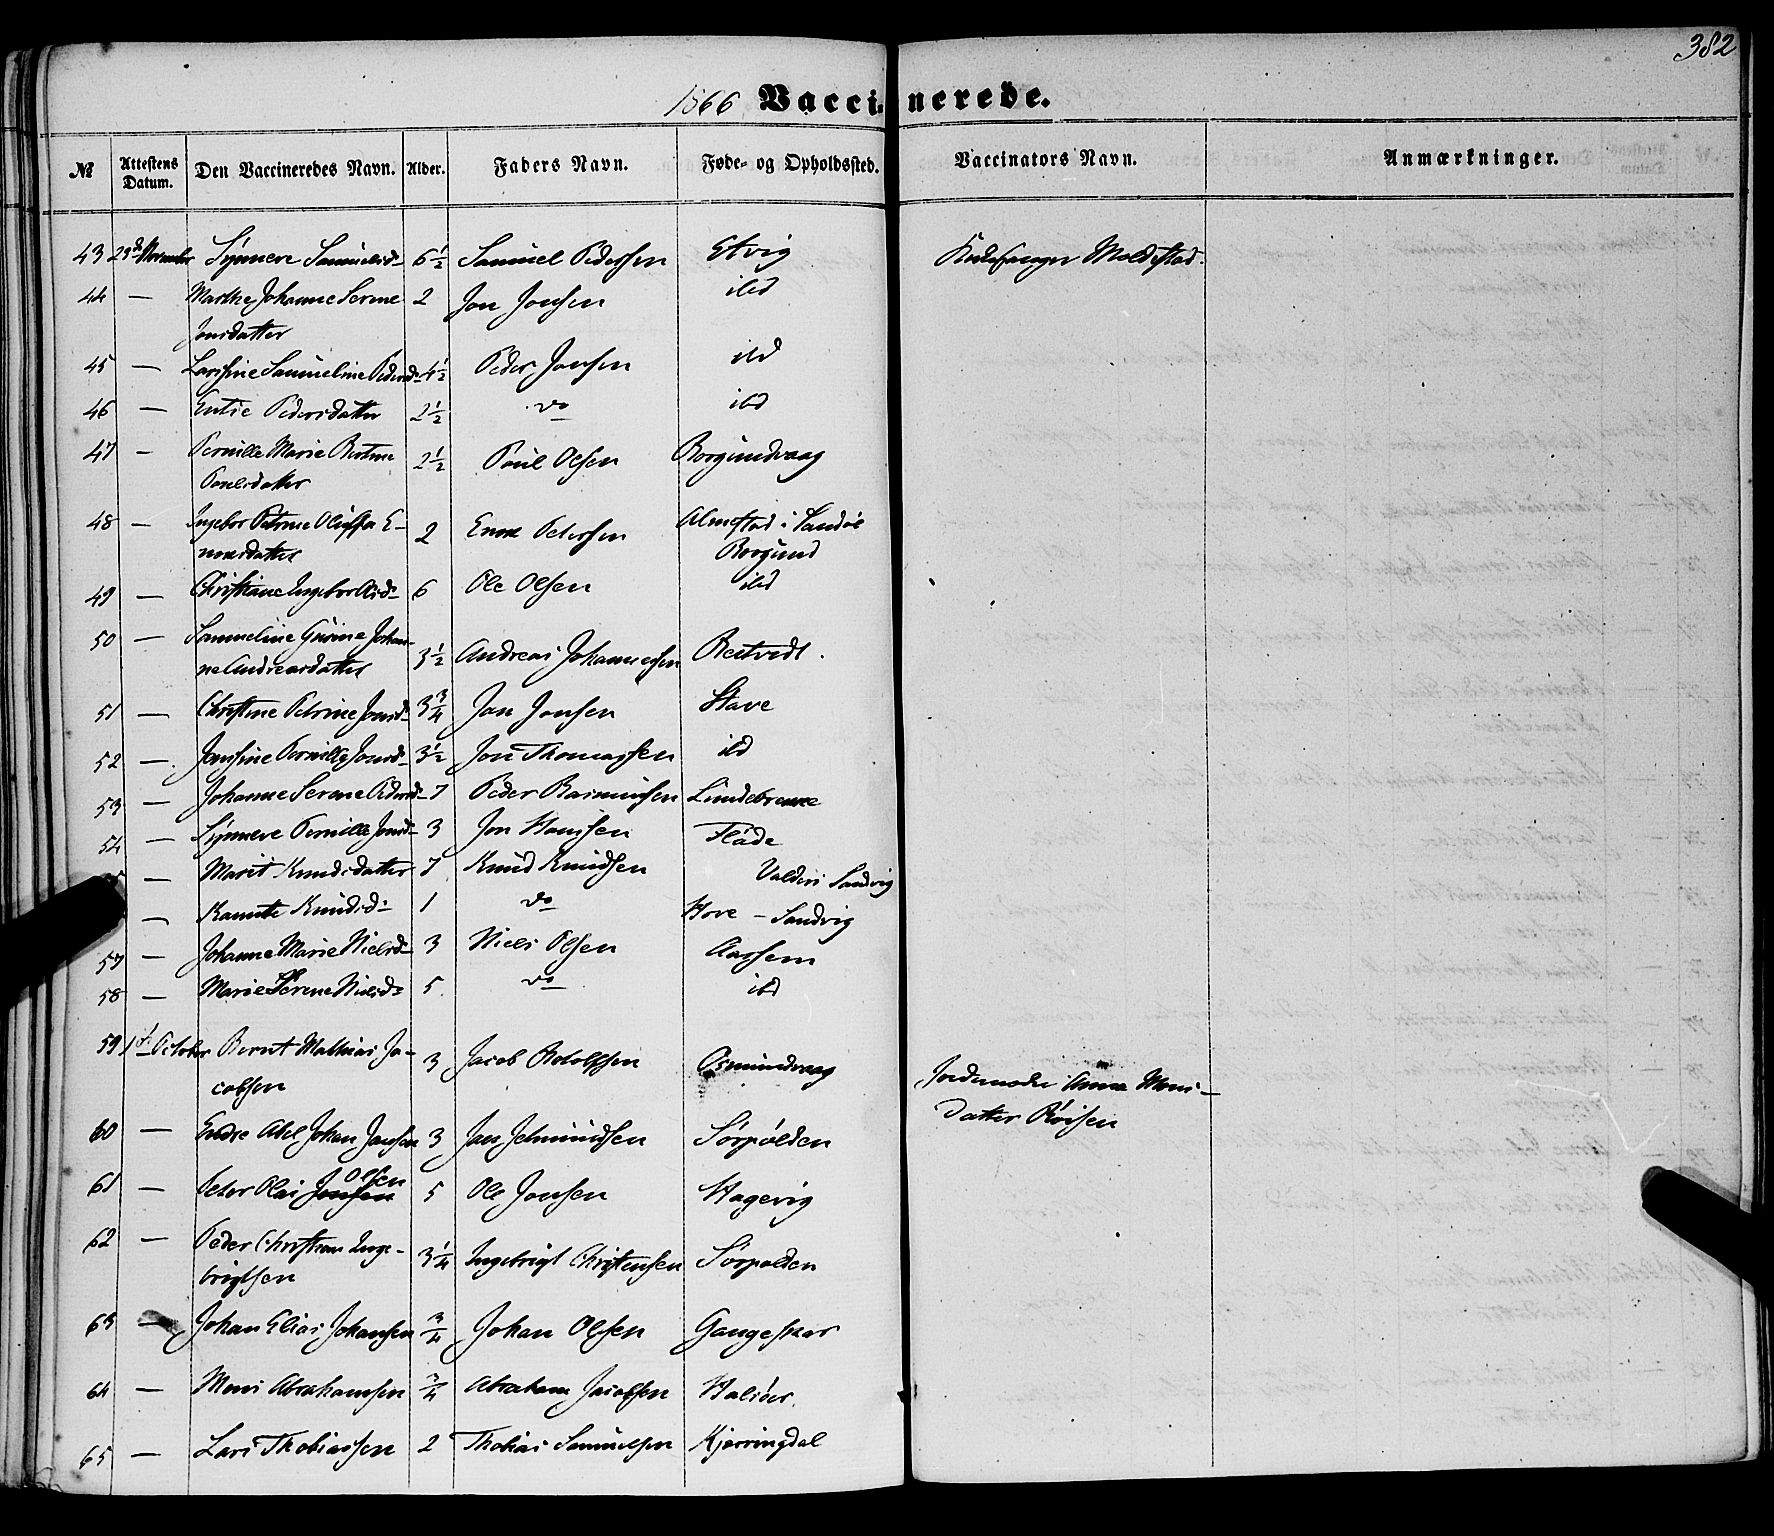 382
1866 Vaccinerede.
№ Attestens Datum. Den Vaccineredes Navn. Alder. Faders Navn. Føde- og Opholdssted. Vaccinators Navn. Anmærkninger.
43 29de November Synneve Samuelsd. 6½ Samuel Pedersen Ervig Kirkesanger Moldestad.
44 — Marthe Johanne Serene 2 Jon Jonsen ibd
Jonsdatter
45 — Larsine Samueline Pedersd. 4½ Peder Jonsen ibd
46 — Entie Pedersdatter 2½ do ibd
47 — Pernille Marie Bertine 2½ Poul Olsen Borgundvaag
Poulsdatter
48 — Ingebor Petrine Oluffa E- 2 Enok Petersen Almestad i Sandøe
noksdatter Borgund
49 — Christiane Ingebor Olsd. 6 Ole Olsen ibd
50 — Sammeline Gurine Johan-
ne Andreasdatter 3½ Andreas Johannessen Restvedt.
51 — Christine Petrine Jonsd. 3¾ Jon Jonsen Stave
52 — Jonsine Pernille Jonsd. 3½ Jon Thomassen ibd
53 — Johanne Serene Pedersd. 7 Peder Rasmussen Lundebrekke
54 — Synneve Pernille Jonsd. 3 Jon Hansen Fløde
— Marit Knudsdatter 7 Knud Knudsen Valders Sandvig
— Kanute Knudsd. 1 do Hove - Sandvig
57 — Johanne Marie Nielsd. 3 Niels Olsen Aarsem
58 — Marie Serene Nielsd. 5. do ibd
59 1st October Bernt Mathias Ja- 3 Jacob Rotolfsen Osmundvaag Jordemoder Anna Mons-
cobsen datter Røisen
60 — Endre Abel Johan Jansen 3 Jan Jelmundsen Sørpolden
61 — Peter Olai Jonsen Olsen 5 Ole Jonsen Hagevig
62 — Peder Christian Inge- 3¼ Ingebrigt Christensen Sørpolden
brigtsen
63 — Johan Elias Johansen ¾ Johan Olsen Gangeskar
64 — Mons Abrahamsen ¾ Abraham Jacobsen Halsør.
65 — Lars Thobiassen 2 Thobias Samuelsen Kjerringdal